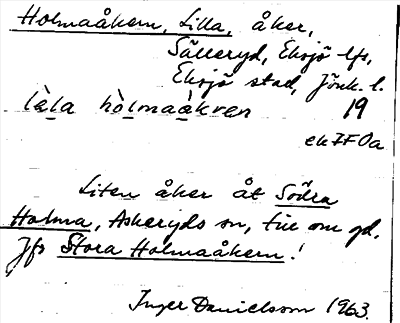 Holmaåkern, Lilla, åker,
Sälleryd, Eksjö lfs,
Eksjö stad, Jönk. l.
lèla hòlmaàkren 19
ek IF Oa
Liten åker åt Södra
Holma, Askeryds sn, till om gd.
Jfr Stora Holmaåkern!
Inger Danielsson 1963.